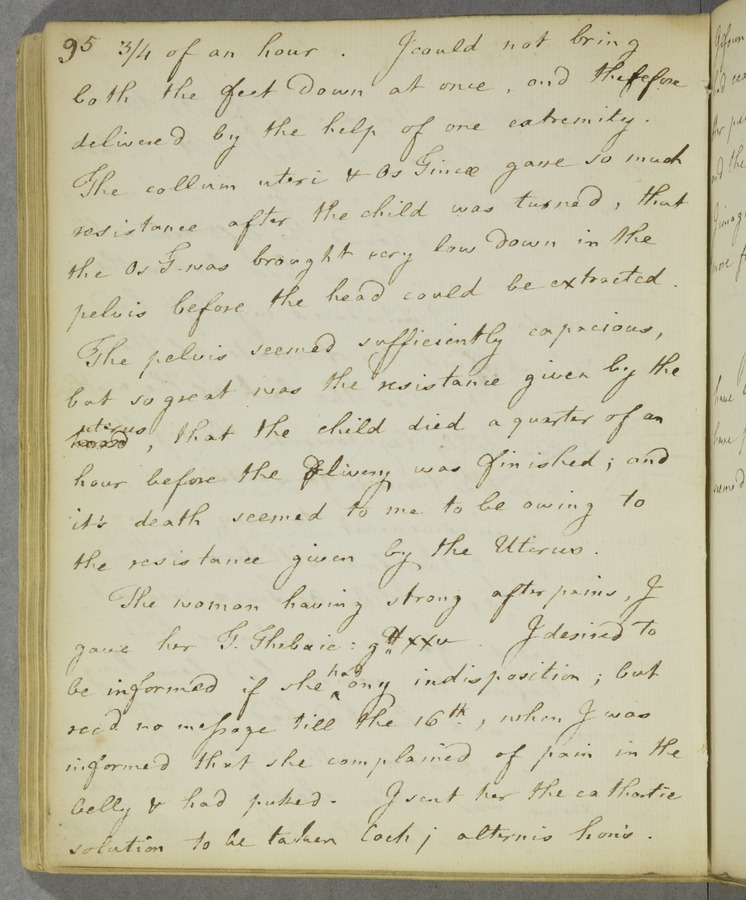 95 3/4 of an hour . I could not bring
both the feet down at once , and therefore
delivered by the help of one extremity .
The collum uteri & Os Tincæ gave so much
resistance after the child was turned , that
the Os T. was brought very low down in the
pelvis before the head could be extracted .
The pelvis seemed sufficiently capacious ,
but so great was the resistance given by the
uterus , that the child died a quarter of an
hour before the delivery was finished ; and
it's death seemed to me to be owing to
the resistance given by the Uterus .
The woman having strong after pains , I
gave her T. Thebaic : gtt xxv . I desired to
be informed if she had any indisposition ; but
recd no message till the 16th , when I was
informed that she complained of pain in the
belly & had puked . I sent her the cathartic
solution to be taken Coch j alternis horis .